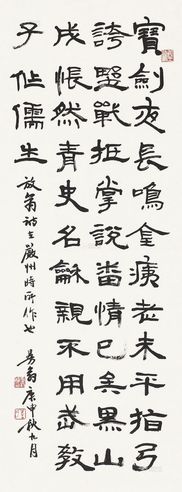 寶劍夜長鳴金痍老未平指弓
誇野戰抵掌說番情已矣黑山
戍悵然青史名龢親不用武教
子作儒生
放翁嚴州時所作也
翁庚申秋九月